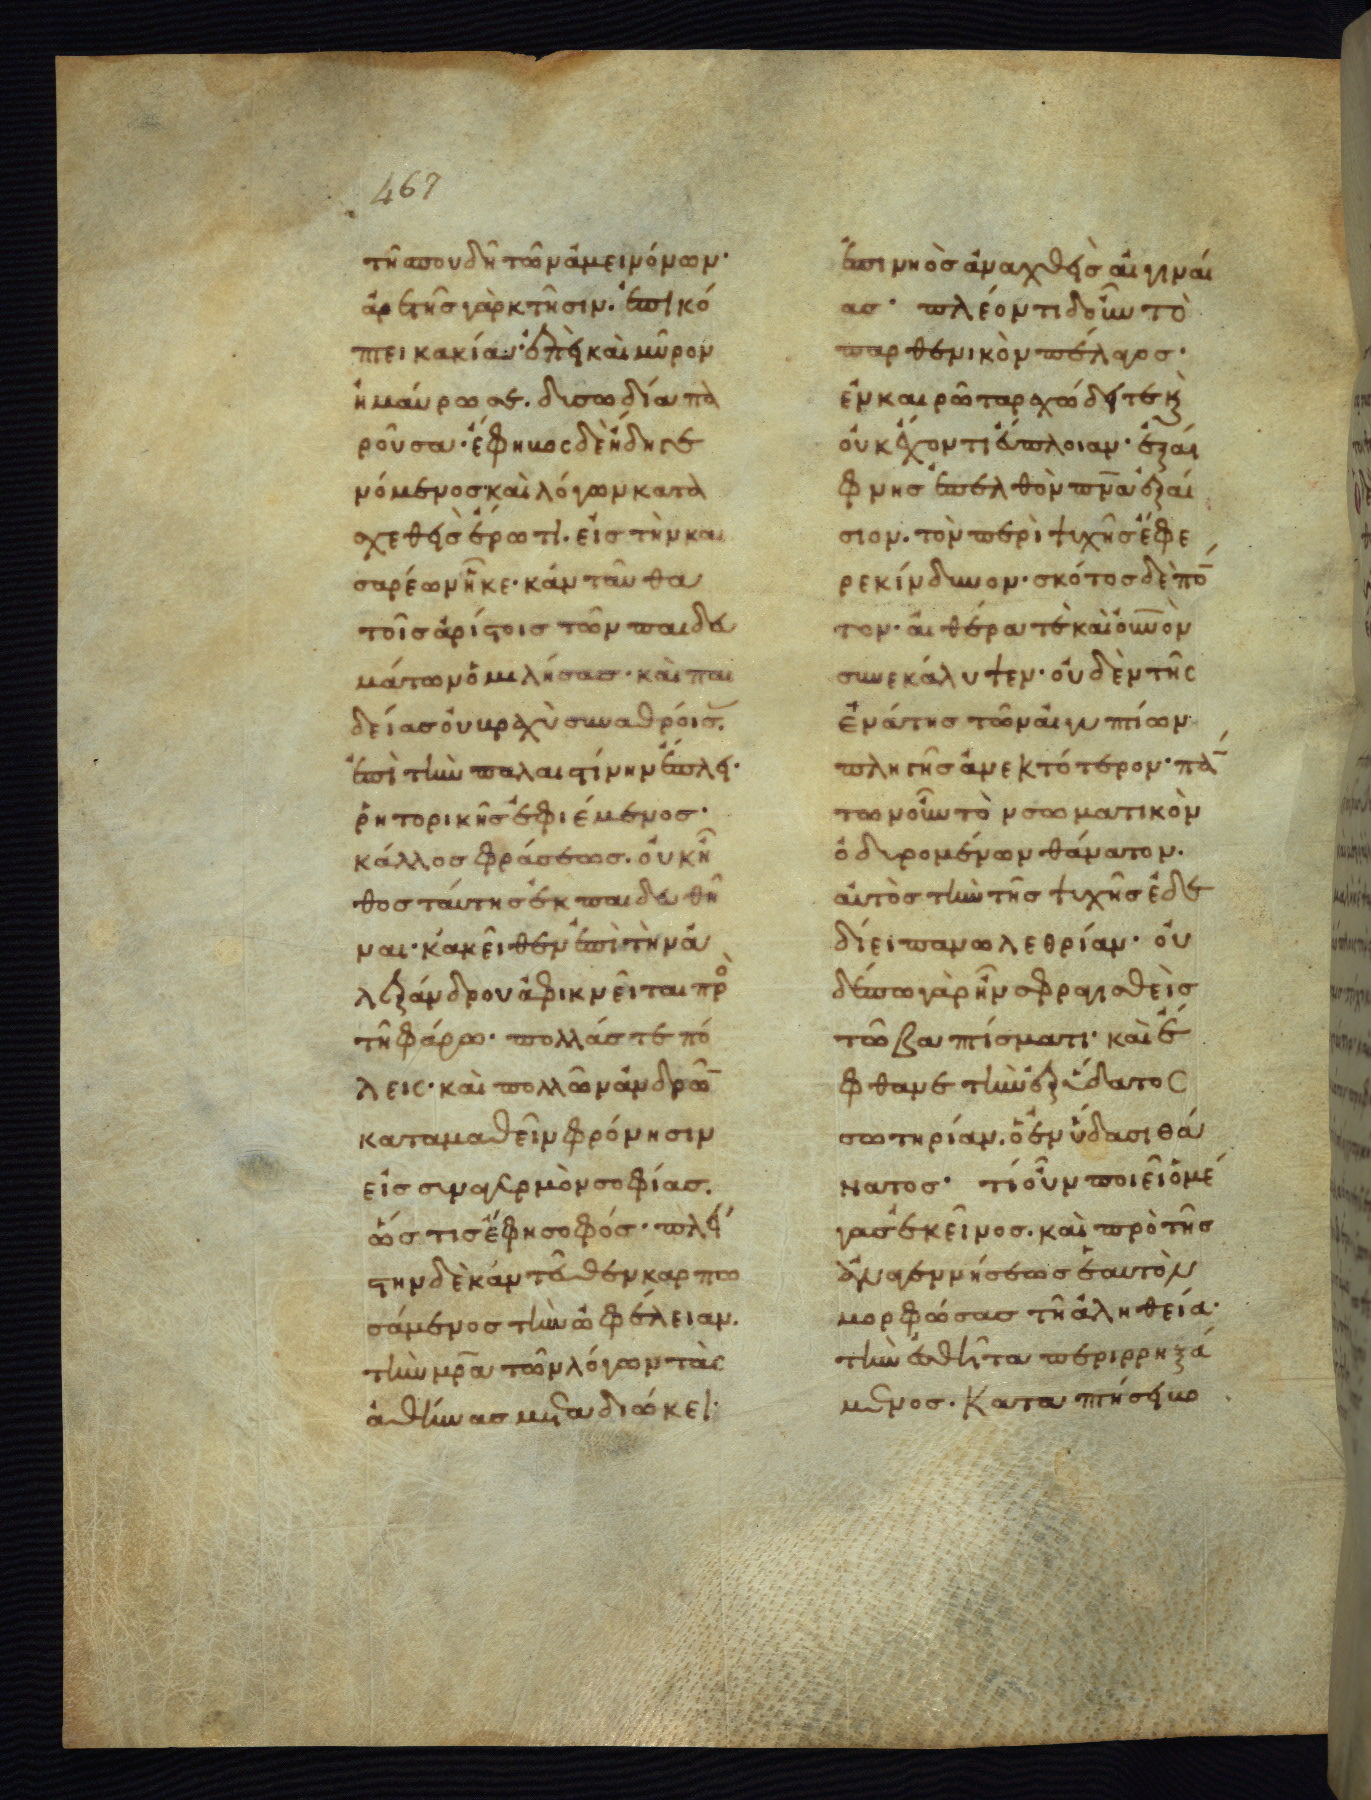 467
τῆ σπουδῆ τῶν ἀμεινόνων·
ἀρετῆς γὰρ κτῆσιν. ἐπικό
πτει κακία· ἐπεὶ καὶ μῦρον
ἠμαύρωσε. δυσωδία πα
ροῦσα· ἔφηβος δὲ ἤδη γε
νόμενος· καὶ λόγων κατα
σχεθεὶς ἔρωτι. εἰς τὴν και
σαρέων ἧκε· κἀνταῦθα
τοῖς ἀρίστοις τῶν παιδευ
μάτων ὁμιλήσας· καὶ παι
δείας οὐ βραχὺ συναθροίσ.
ἐπὶ τὴν παλαιστίνην ἔπλει·
ῥητορικῆς ἐφιέμενος·
κάλλος φράσεως. οὐκ ἦ
θος ταύτης ἐκπαιδευθῆ
ναι· κἀκεῖθεν ἐπὶ τὴν ἀ
λεξάνδρου ἀφικνεῖται πρὸ
τῆ φάρω· πολλάς τε πό
λεις· καὶ πολλῶν ἀνδρῶ
καταμαθεῖν φρόνησιν
εἰς συναγερμὸν σοφίας.
ὥς τις ἔφη σοφός· πλεί
στην δὲ κἀντεῦθεν καρπω
σάμενος τὴν ὠφέλειαν.
τὴν μρα τῶν λόγων τὰς
ἀθήνας μεταδιώκει·
ἐπὶ νηὸς ἀναχθεὶς αἰγιναί
ας· πλέοντι δ' οὖν τὸ
παρθενικὸν πέλαγος·
ἐν καιρῶ ταραχώδει τε κ
οὐκ ἔχοντι εὔπλοιαν· ἐξαί
φνης ἐπελθὸν πνα ἐξαί
σιον. τὸν περὶ ψυχῆς ἔφε
ρε κίνδυνον· σκότος δὲ πό
τον· αἰθέρα τε καὶ οὐνὸν
συνεκάλυψεν· οὐδὲν τῆς
ἐνάτης τῶν αἰγυπτίων
πληγῆς ἀνεκτότερον· πά
των οὖν τὸν σωματικὸν
ὀδυρομένων θάνατον.
αὐτὸς τὴν τῆς ψυχῆς ἐδε
δίει πανωλεθρίαν· οὐ
δέπω γὰρ ἦν σφραγισθεὶς
τῶ βαπτίσματι· καὶ ἔ
φθανε τὴν ἐξ ὕδατος
σωτηρίαν. ὁ ἐν ὕδασι θά
νατος· τί οὖν ποιεῖ ὁ μέ
γας ἐκεῖνος. καὶ πρὸ τῆς
ἀναγεννήσεως ἑαυτὸν
μορφώσας τῆ ἀληθεία·
τὴν ἐσθῆτα περιρρηξά
μενος. καταπτήσει βο